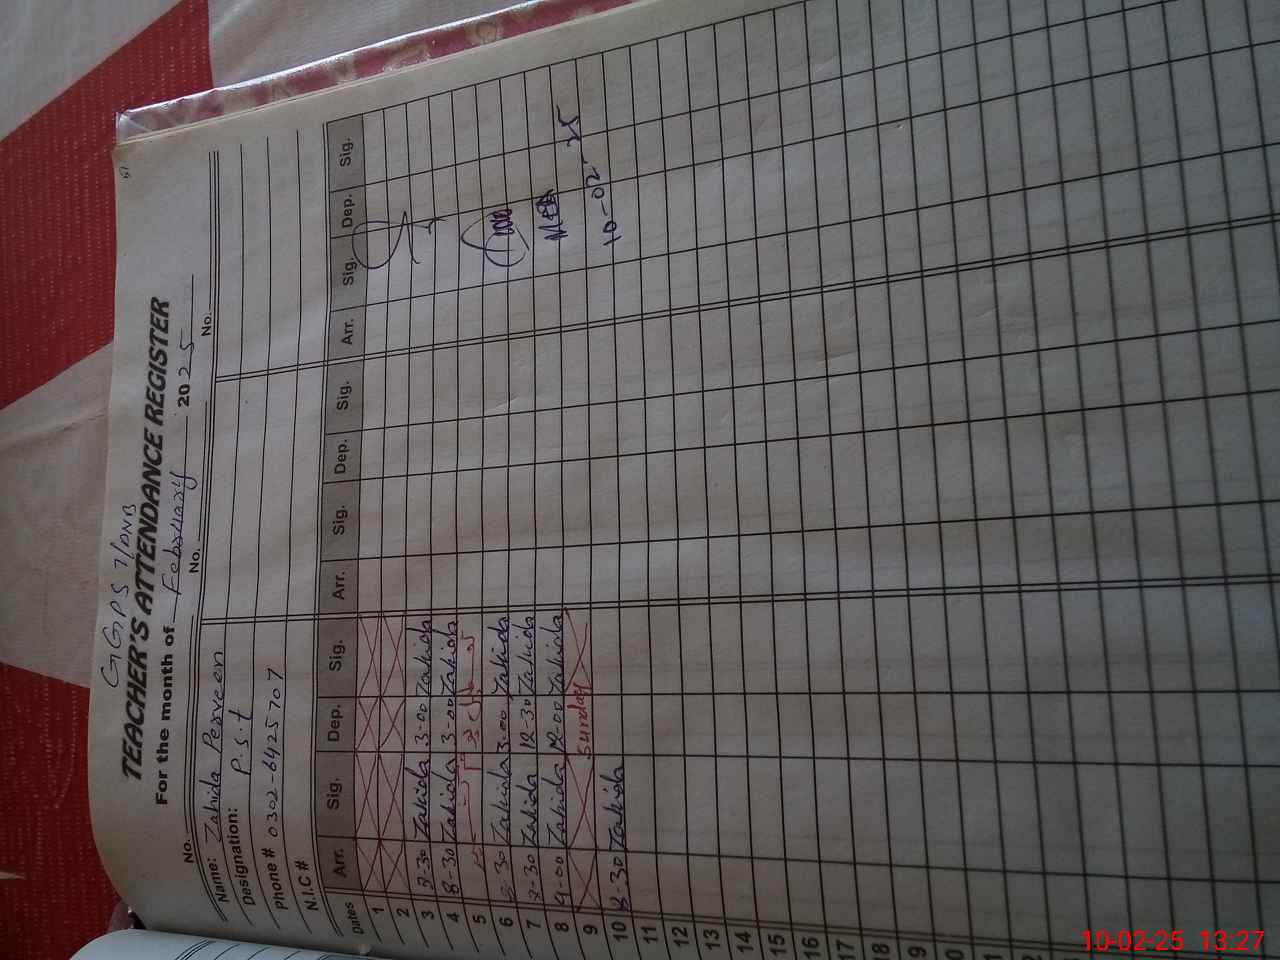 GGPS 7/DNB
TEACHER'S ATTENDANCE REGISTER
For the month of February 2025
No. No. No.
Name: Zahida Perveen
Designation: P.S.t
Phone # 0302-6425707
N.I.C #
Dates Arr. Sig. Dep. Sig. Arr. Sig. Dep. Sig. Arr. Sig. Dep. Sig.
1
2
3 Zahida 3-00 Zahida
4 8-30 Zahida 3-00 Zahida
5
6 Zahida 3-00 Zahida
7 Zahida 12-30 Zahida
8 Zahida Zahida
9 Sunday
10 8-30 Zahida
10-02-25
11
12
13
14
15
16
17
18
19
10-02-25 13:27